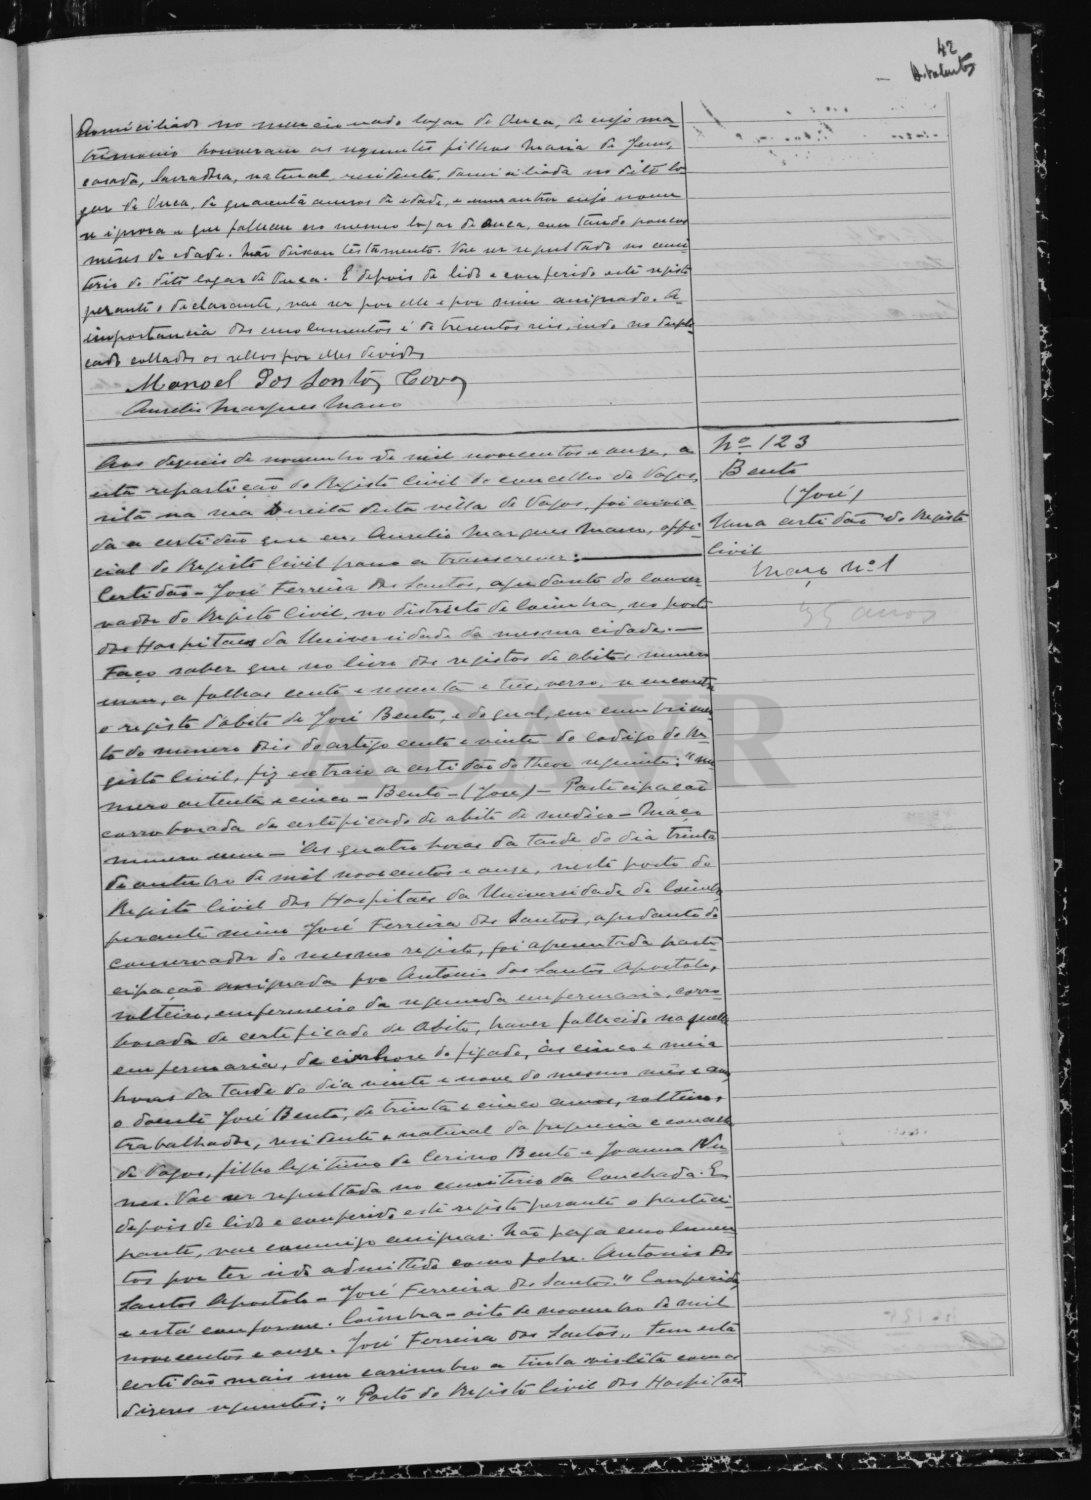 42
domiciliado no mencionado logar de Ouca, de cujo ma-
trimonio houveram os seguintes filhos Maria de Jesus,
casada, lavradora, natural, residente, domiciliada no dito lo-
gar de Ouca, de quarenta annos de edade, e uma outra cujo nome
se ignora e que falleceu no mesmo logar de Ouca, contando poucos
mêses de edade. Não deixou testamento. Vae ser sepultado no cemi-
terio do dito logar de Ouca. E depois de lido e conferido este registo
perante o declarante, vae ser por elle e por mim assignado. A
importancia dos emolumentos é de tresentos reis, indo no dupli-
cado collados os sellos por elles devidos
Manoel Dos Santos Covas
Aurelio Marques Mano
Nº 123
Bento
(José)
Uma certidão do Registo
Civil
Maço nº 1
35 annos
Aos deseseis de novembro de mil novecentos e onze, a
esta repartição do Registo Civil do concelho de Vagos,
sita na rua Direita desta villa de Vagos, foi envia-
da a certidão que eu, Aurelio Marques Mano, offi-
cial do Registo Civil passo a transcrever:
Certidão - José Ferreira dos Santos, ajudante do conser-
vador do Registo Civil, no districto de Coimbra, no posto
dos Hospitaes da Universidade da mesma cidade.
Faço saber que no livro dos registos de obitos numero
um, a folhas cento e noventa e tres, verso, se encontra
o registo d'obito de José Bento, e do qual, em cumprimen-
to do numero dois do artigo cento e vinte do codigo do Re-
gisto Civil, fiz extrair a certidão do theor seguinte: "Nu-
mero oitenta e cinco - Bento - (José) - Participação
corroborada de certificado de obito de medico - Maço
numero um - Ás quatro horas da tarde do dia trinta
de outubro de mil novecentos e onze, neste posto do
Registo Civil dos Hospitaes da Universidade de Coimbra,
perante mim José Ferreira dos Santos, ajudante do
conservador do mesmo registo, foi apresentada parti-
cipação assignada por Antonio dos Santos Apostolo,
solteiro, enfermeiro da segunda enfermaria, corro-
borada de certificado de obito, haver fallecido naquella
enfermaria, de cirrhose do figado, ás cinco e meia
horas da tarde do dia vinte e nove do mesmo mês e ano
o doente José Bento, de trinta e cinco annos, solteiro,
trabalhador, residente e natural da freguesia e concelho
de Vagos, filho legitimo de Cerino Bento e Joanna Nu-
nes. Vae ser sepultada no cemiterio da Conchada. E
depois de lido e conferido este registo perante o partici-
pante, vae commigo assignar. Não paga emolumen-
tos por ter sido admittido como pobre. Antonio dos
Santos Apostolo - José Ferreira dos Santos." Conferido
e está conforme. Coimbra - oito de novembro de mil
novecentos e onze. José Ferreira dos Santos,, Tem esta
certidão mais um carimbo a tinta violeta com os
dizeres seguintes: "Posto do Registo Civil dos Hospitaes
ADAVR